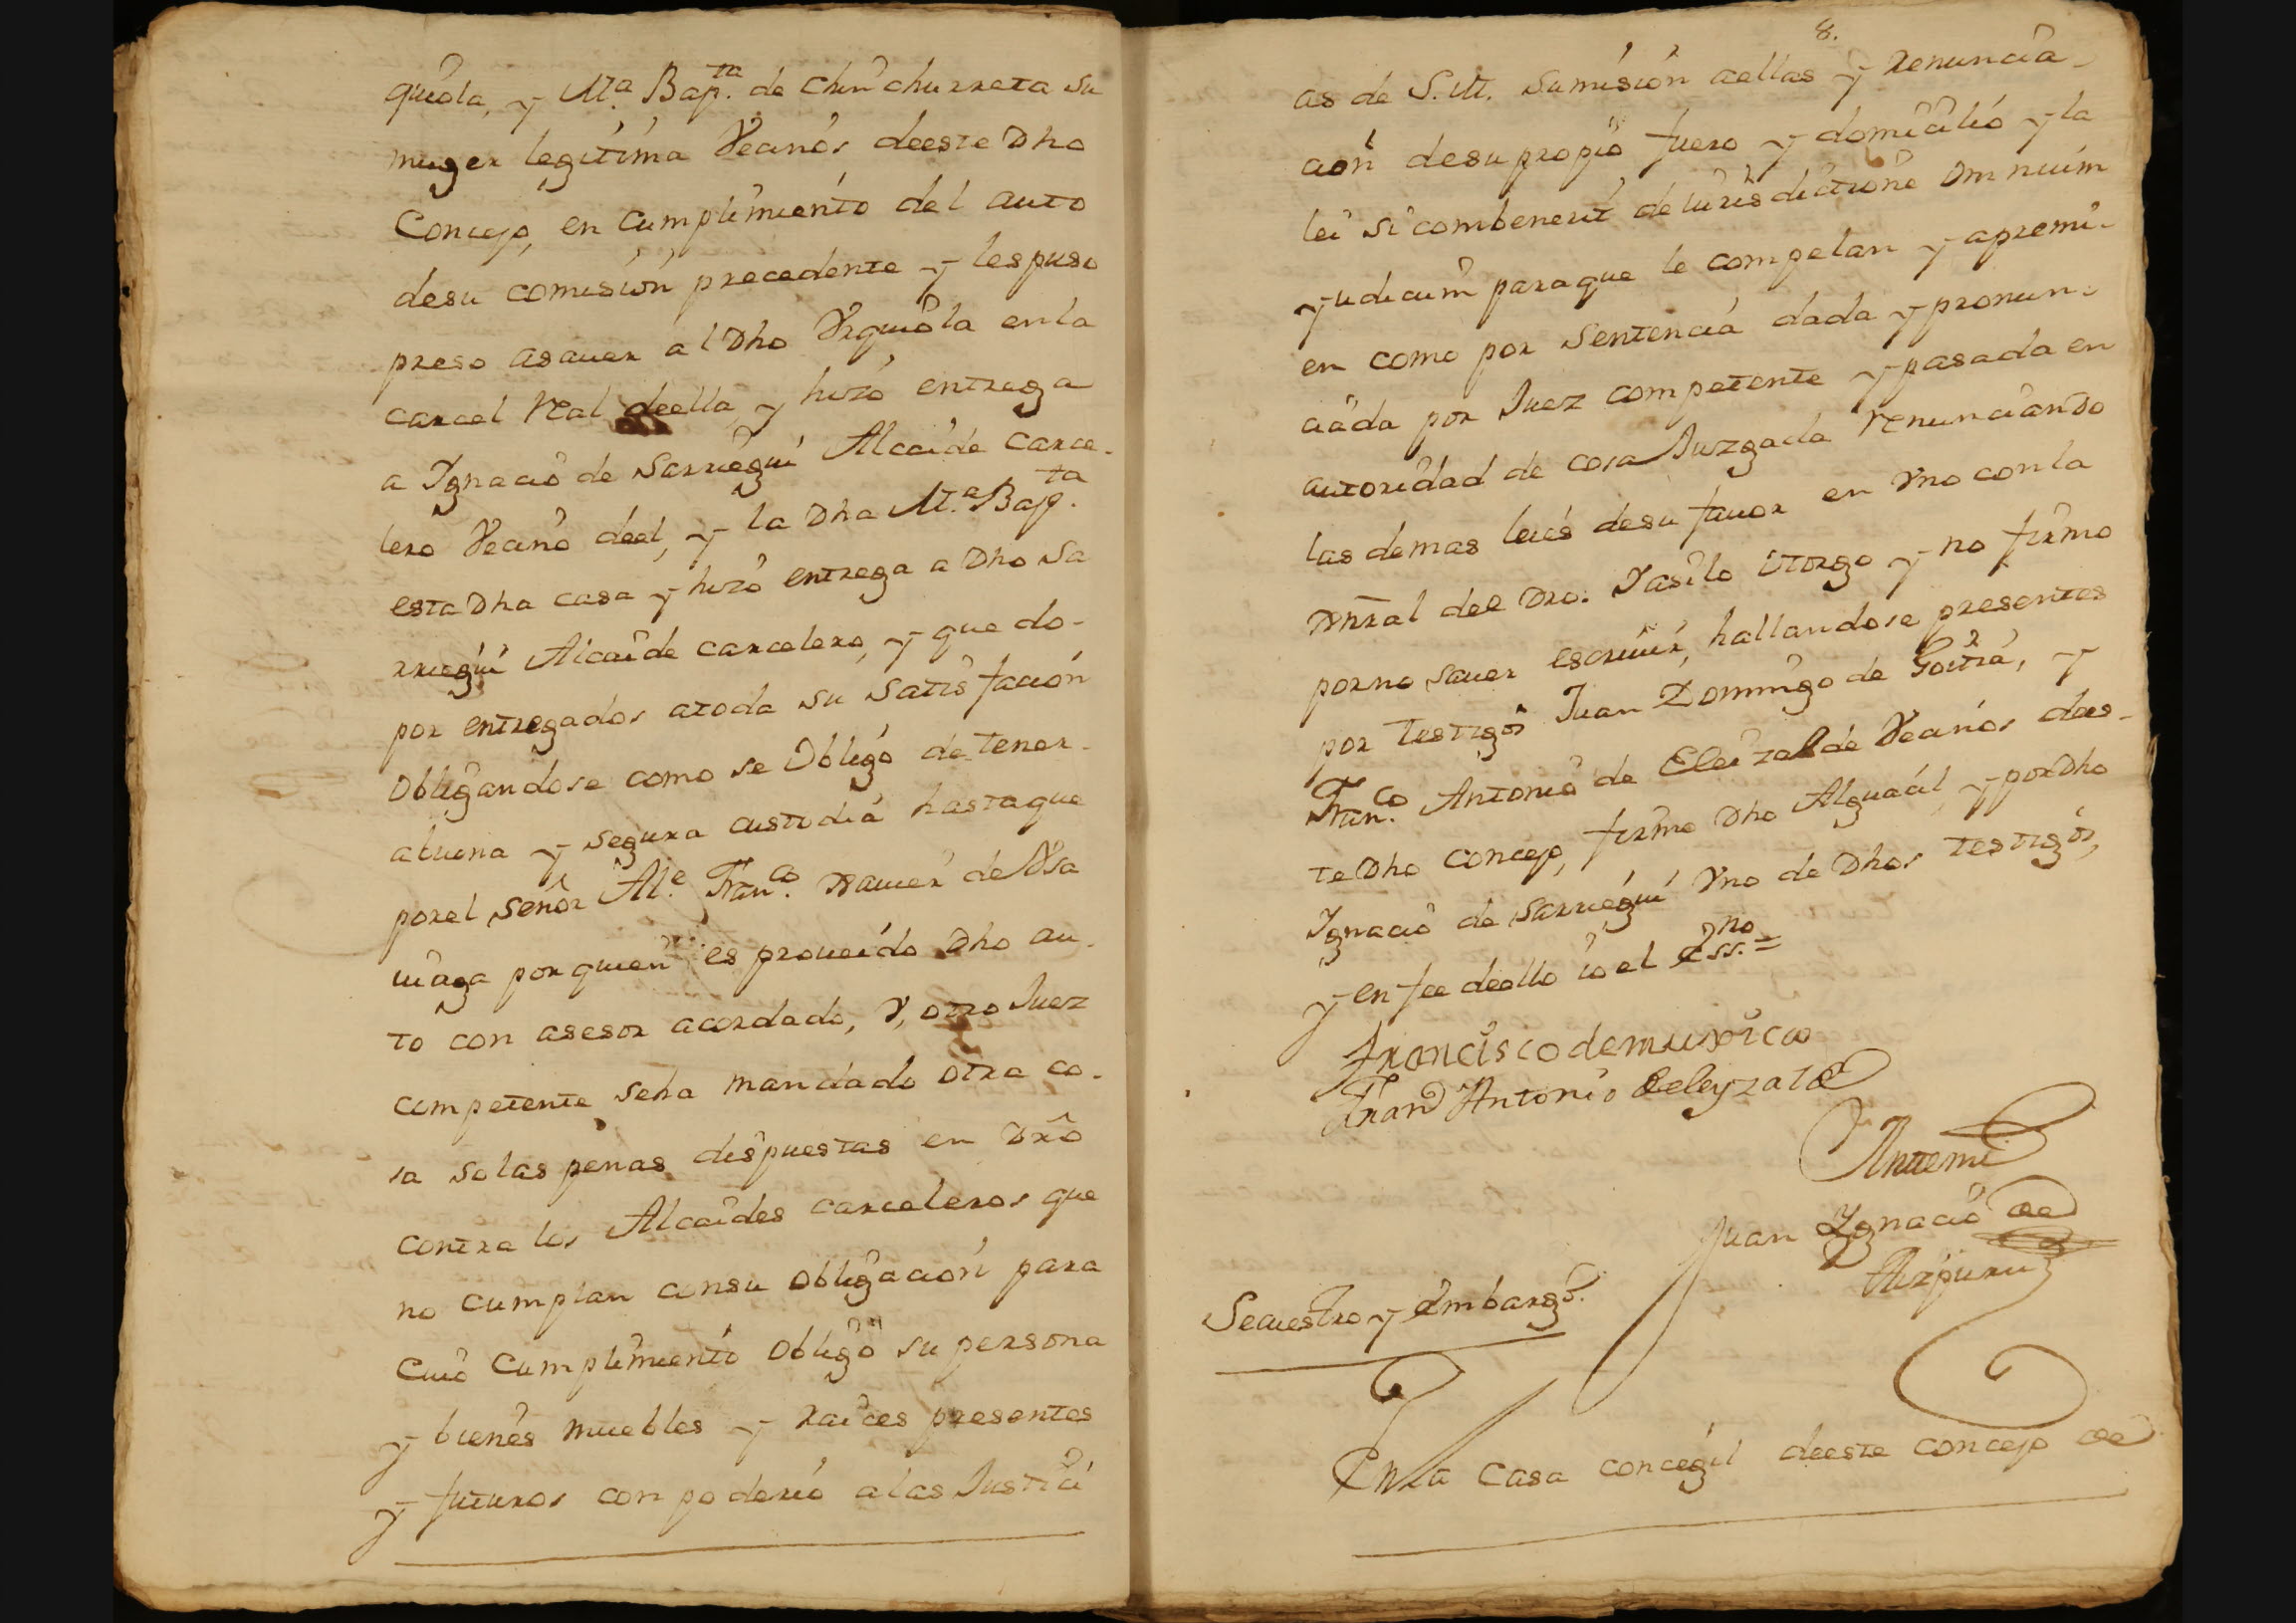 quiola, y M.ª Bap.ta de Chinchurreta su
muger legitima Vecinos deeste Dho
Concejo, en Cumplimiento del auto
desu comision precedente y les puso
preso asauer al Dho Vrquiola enla
carcel Real deella, y hizo entrega
a Ygnacio de Sarriegui Alcaide carce-
lero Vecino deel, y la Dha M.ª Bap.ta
esta Dha casa y hizo entrega a Dho Sa
rriegui Alcaide carcelero, y que do-
por entregados atoda su Satisfacion
Obligandose como se Obligo de tener-
abuena y segura custodia hastaque
porel señor Al.e Fran.co Xauier de Vsa
uiaga por quien es proueido Dho au-
to con asesor acordado, V, otro Juez
competente seha mandado otra co-
sa solas penas dispuestas en Dro
contra los Alcaides carceleros que
no cumplan consu obligacion para
cuio cumplimiento obligo su persona
y bienes muebles y raices presentes
y futuros con poderio alas Justici
8.
as de S.M. Sumision aellas y Renuncia-
cion desu propio fuero y domicilio y la
lei si combenerit de iurisdictione Omnium
yudicum paraque le compelan y apremi-
en como por Sentencia dada y pronun-
ciada por Juez competente y pasada en
autoridad de cosa Juzgada renunciando
las demas leies desu fauor en Vno conla
Gnral del Dro. Yasilo otorgo y no firmo
porno sauer escriuir, hallandose presentes
por testigos Juan Domingo de Goitia, y
Fran.co Antonio de Eleizalde Vecinos dees-
te Dho concejo, firmo Dho Alguacil, y porDho
Ygnacio de Sarriegui Vno de Dhos testigos,
y en fee deello io el Ess.no =
Francisco de muxica
Fran.co Antonio de leyzalde
Antemi
Juan Ygnacio de
Aizpuru
Secuestro y Embargo.
Enla Casa concegil deeste concejo de